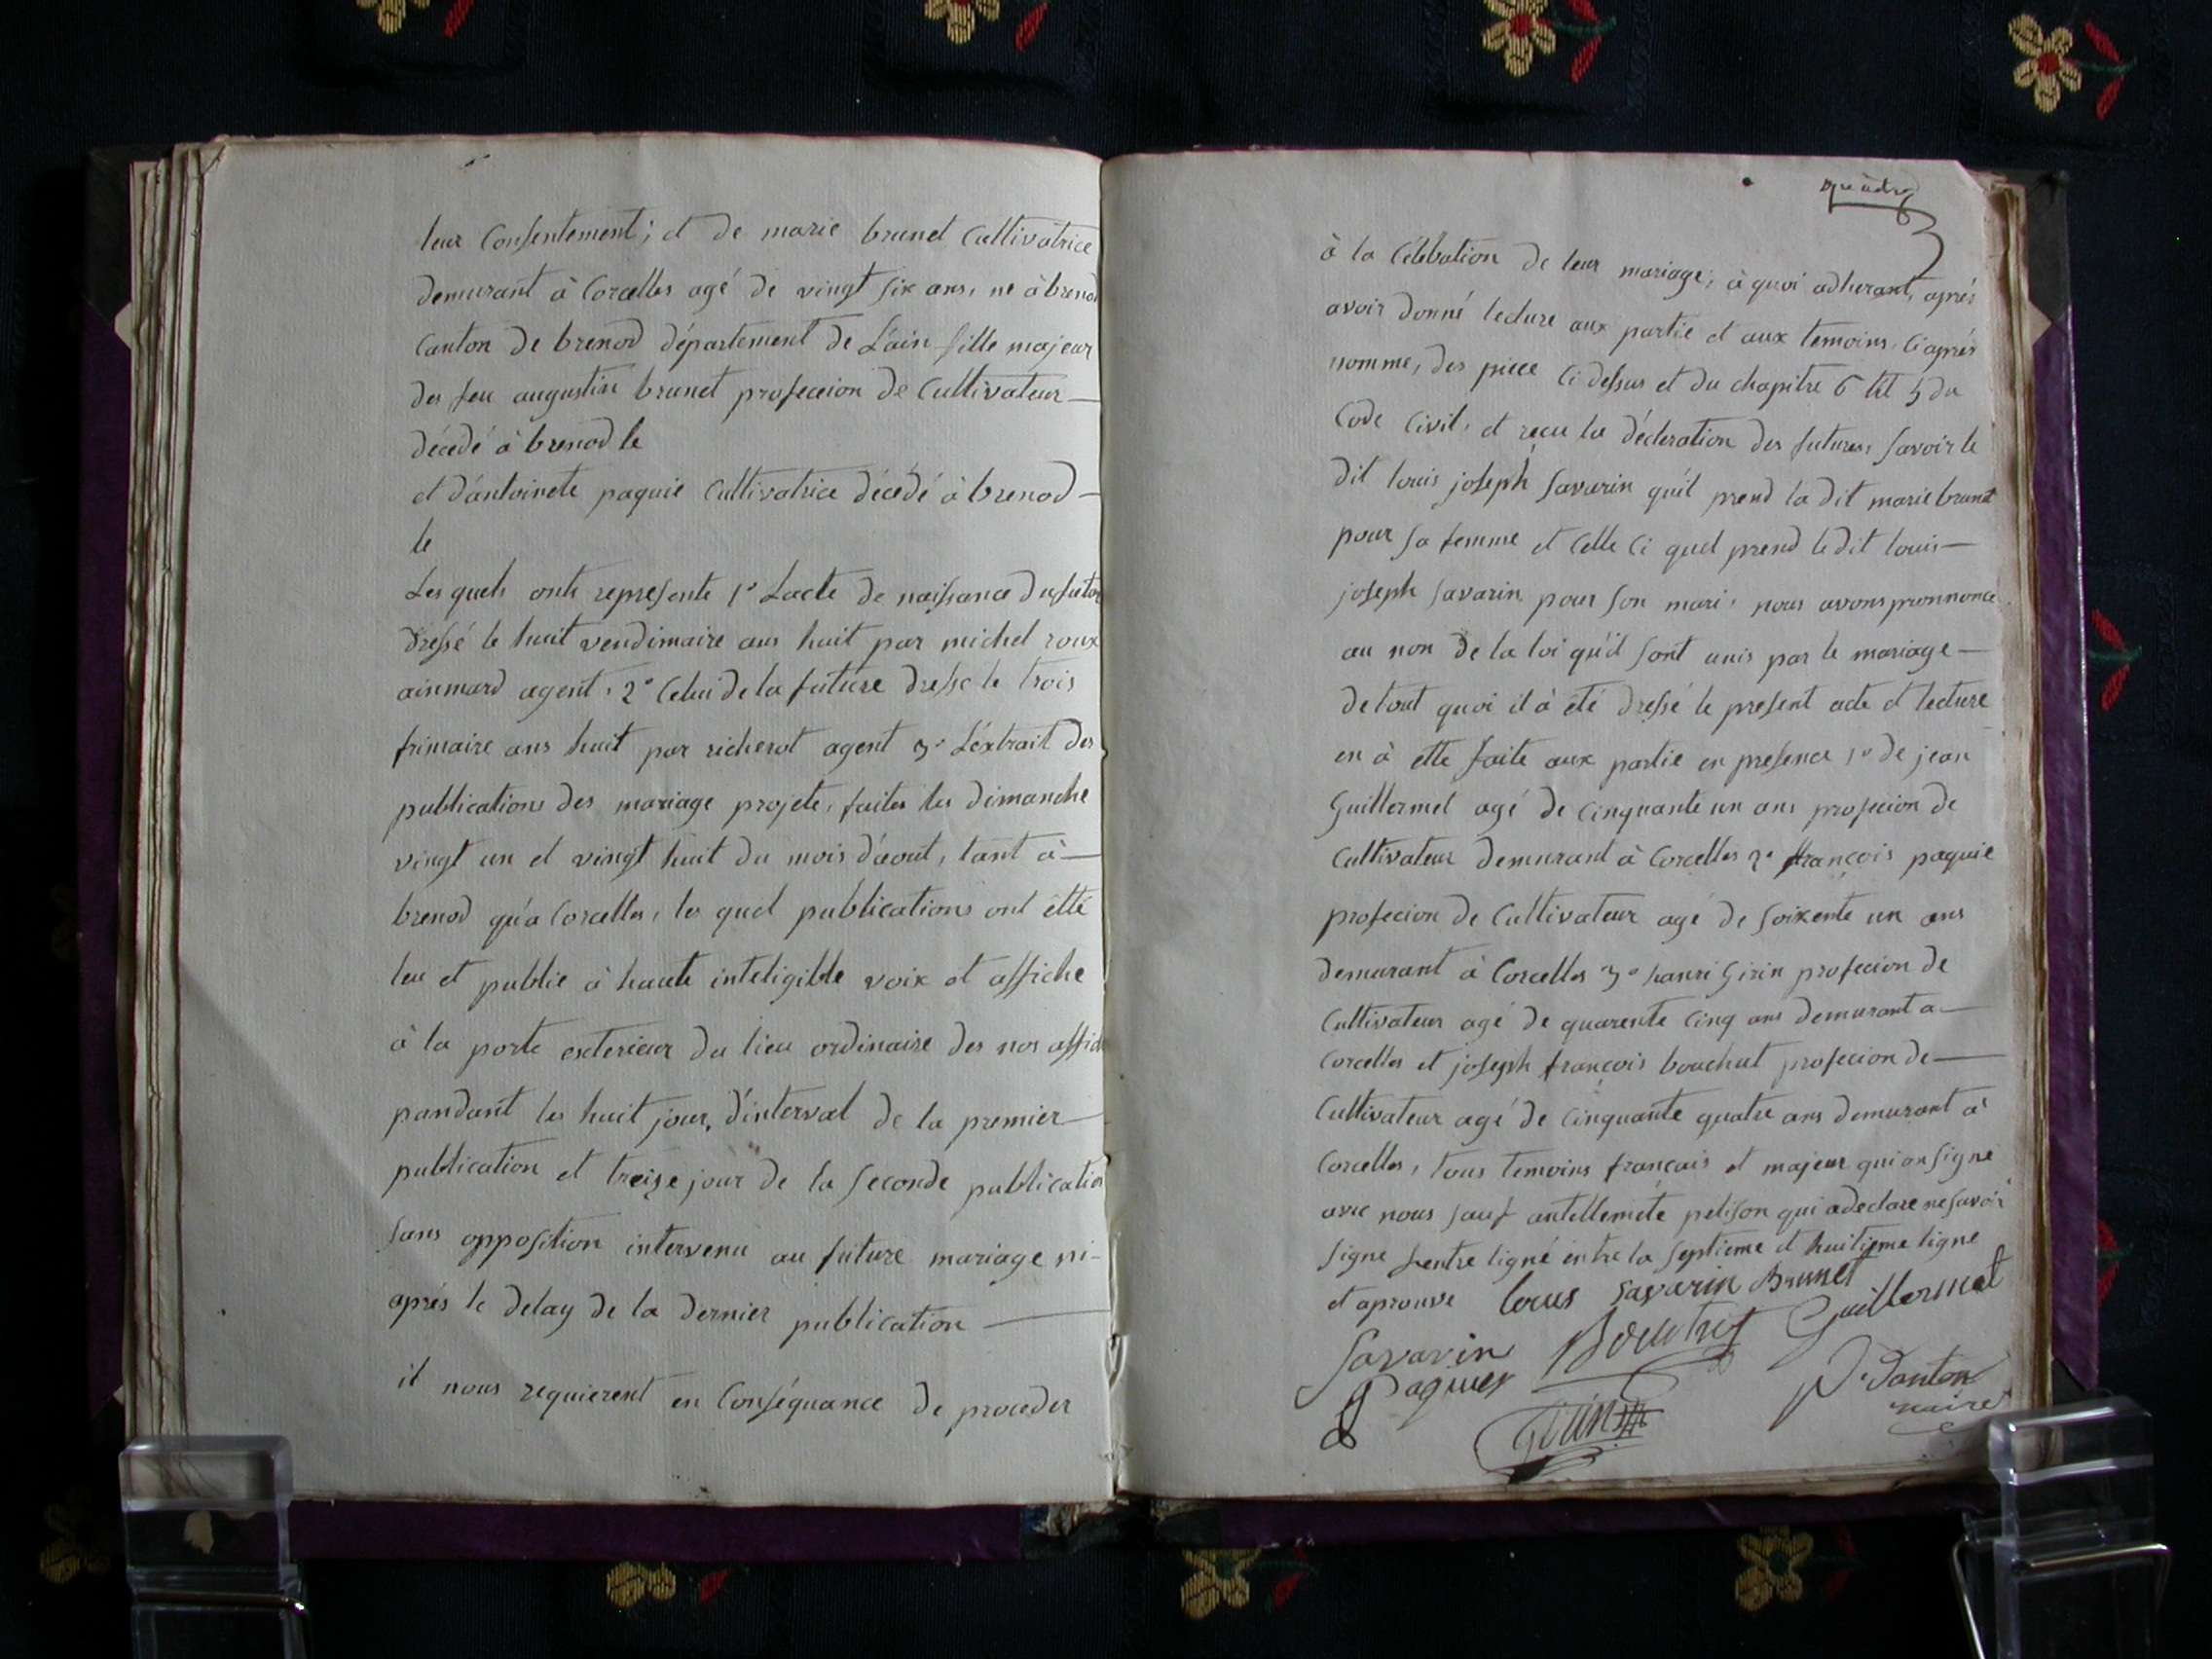 leur Consentement; et de marie brunet Cultivatrice
demurant à Corcelles agé de vingt six ans, ne à brenod
Canton de brenod département de L'ain fille majeur
des feu augustin brunet profession de Cultivateur
décédé à brenod le
et d'antoinete paquie Cultivatrice décédé à brenod
le
Les quels onts represente 1º Lacte de naissance du futur
dressé le huit vendimaire ans huit par michel roux
ainmard agent, 2º Celui de la future dresse le trois
frimaire ans huit par richerot agent 3º L'éxtrait des
publications des mariage projete, faites les dimanche
vingt un et vingt huit du mois d'aout, tant à
brenod qu'a Corcelles, les quel publications ont étte
leu et publie à haute inteligible voix et affiche
à la porte exterieur du lieu ordinaire des nos affich
pandant les huit jour, d'interval de la premier
publication et treize jour de la seconde publication
sans opposition intervenu au future mariage ni
aprés le delay de la dernier publication
il nous requierent en Conséquance de proceder
quatre
à la Célébration de leur mariage, à quoi adherant, aprés
avoir donné lecture aux partie et aux temoins, Ci aprés
nomme, des piece Ci dessus et du chapitre 6 tit 5 du
Code Civil, et recu la décleration des futures, savoir le
dit louis joseph savarin qu'il prend la dit marie brunet
pour sa femme et Celle Ci quel prend le dit louis
joseph savarin pour son mari, nous avons pronnonce
au non de la loi qu'il sont unis par le mariage
de tout quoi il à été dressé le present acte et lecture
en à étte faite aux partie en presence 1º de jean
Guillermet agé de Cinquante un ans profecion de
Cultivateur demurant à Corcelles 2º françois paquie
profecion de Cultivateur agé de soixente un ans
demurant à Corcelles 3º hanri Girin profecion de
Cultivateur agé de quarente Cinq ans demurant a
Corcelles et joseph françois bouchut profecion de
Cultivateur agé de Cinquante quatre ans demurant à
Corcelles, tous temoins francais et majeur qui on signe
avec nous sauf antellemete pelison qui a declare ne savoir
signe entre ligné entre la septieme et huitieme ligne
et aprouve louis savarin Brunet
Guillermet
Savarin
Paquier
Girin
Danton
maire